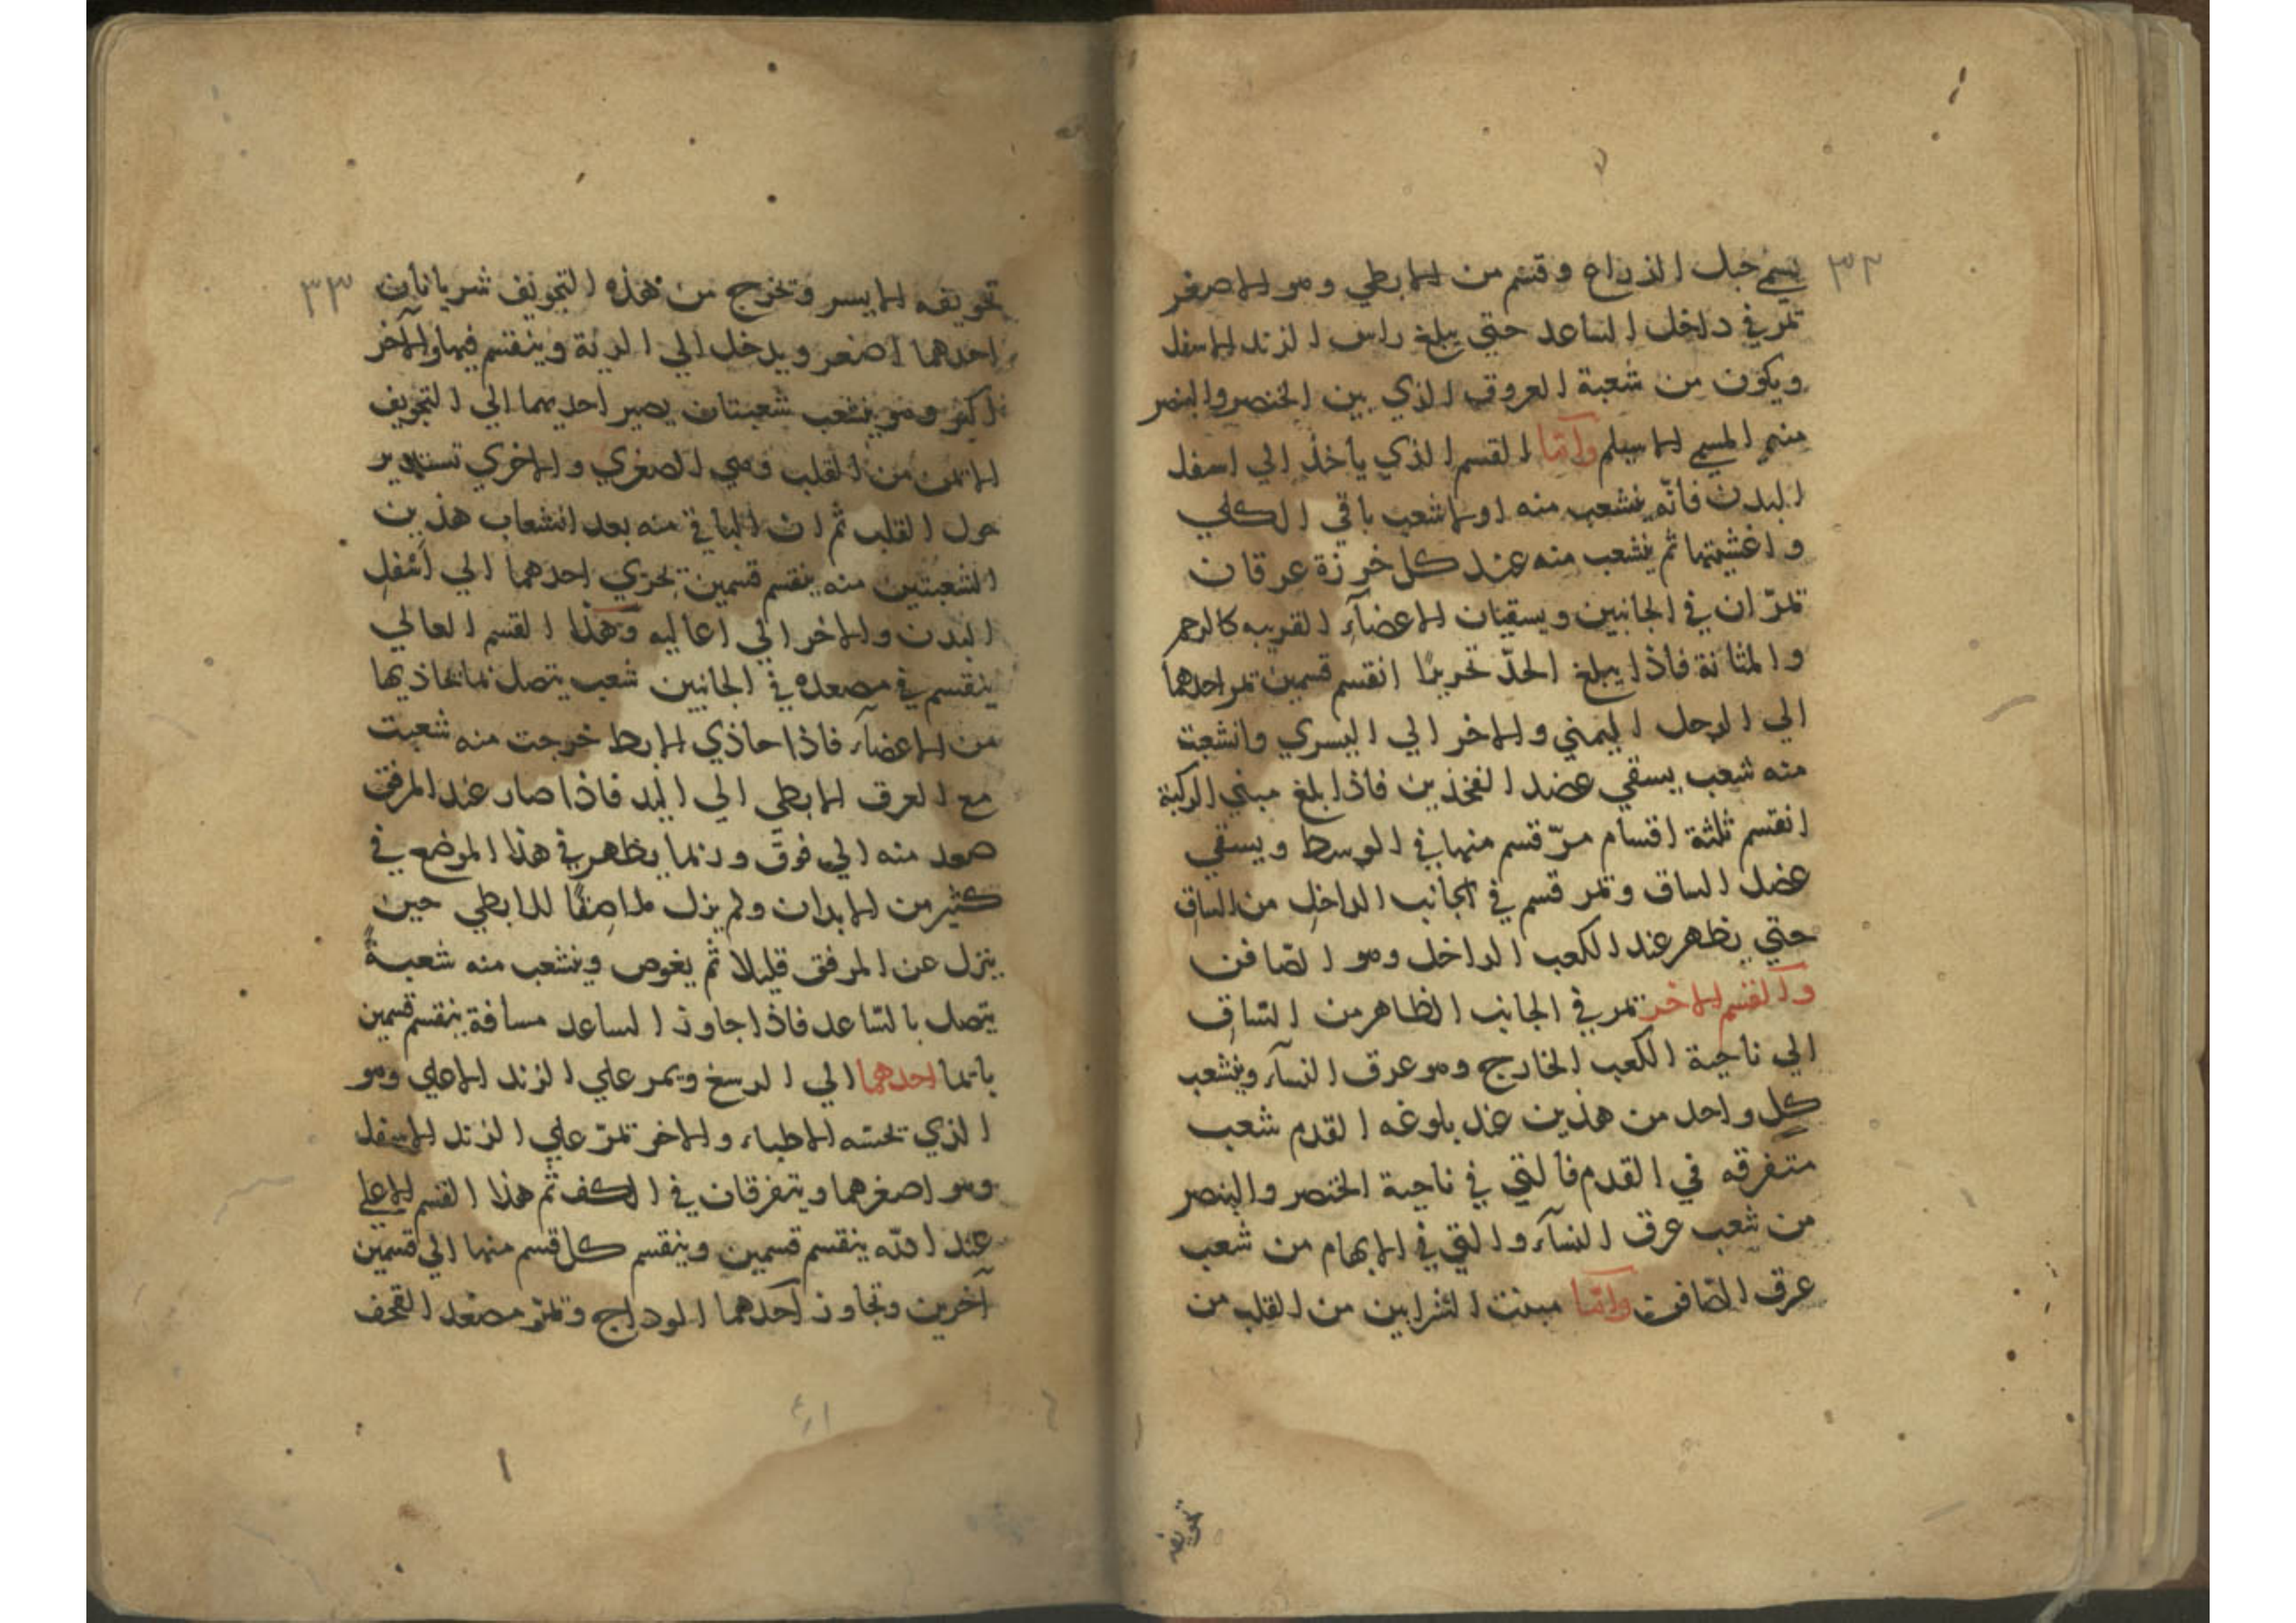 ٣٢
يسمى حبل الذراع وقسم من الابطي وهو الاصغر
تمر في داخل الساعد حتي يبلغ راس الزند الاسفل
ويكون من شعبة العروق الذي بين الخنصر والبنصر
منهم المسمي الاسيلم وأمّا القسم الذي يأخذ الي اسفل
البدن فانّه ينشعب منه اولا شعب باقي الكلي
واغشيتها ثم ينشعب منه عند كل خرزة عرقان
تمرّان في الجانبين ويسقيان الاعضآء القريبه كالرحم
والمثانة فاذا يبلغ الحدّ انقسم قسمين تمر احدهما
الي الرجل اليمني والاخر الي اليسري وانشعبت
منه شعب يسقي عضد الفخذين فاذا بلغ مبني الركبة
انقسم ثلثة اقسام مرّ قسم منها في الوسط ويسقي
عضل الساق وتمر قسم في الجانب الداخل من الساق
حتي يظهر عند الكعب الداخل وهو الصّافن
والقسم الاخر تمر في الجانب الظاهر من السّاق
الي ناحية الكعب الخارج وهو عرق النسآء وينشعب
كل واحد من هذين عند بلوغه القدم شعب
متفرقه في القدم فالتي في ناحية الخنصر والبنصر
من شعب عرق النسآء والتي في الابهام من شعب
عرق الصّافن وامّا مبنت الشرايين من القلب من
تحويفه
٣٣
تحويفه الايسر وتخرج من هذه التجويف شريانان
احدهما اصغر ويدخل الي الرئة وينقسم فيها والآخر
اكبر وهو ينشعب شعبتان يصير احديهما الي التجويف
الايمن من القلب وهي الصغري والاخري تستدير
حول القلب ثم ان الباقي منه بعد انشعاب هذين
الشعبتين منه ينقسم قسمين تجري احدهما الي أسفل
البدن والاخر الي اعاليه وهذا القسم العالي
ينقسم في مصعده في الجانبين شعب يتصل بما يحاذيها
من الاعضآء فاذا حاذي الابط خرجت منه شعبت
مع العرق الابطي الي اليد فاذا صار عند المرفق
صعد منه الي فوق وربما يظهر في هذا الموضع في
كثير من الابدان ولم يزل ملاصقًا للابطي حين
ينزل عن المرفق قليلا ثم يغوص وينشعب منه شعبةً
يتصل بالسّاعد فاذا جاوز الساعد مسافة ينقسم قسمين
ياتما احدهما الي الرسغ ويمر علي الزند الاعلي وهو
الذي تحسّه الاطباء والاخر تمرّ علي الزند الاسفل
وهو اصغرهما ويتفرقان في الكف ثم هذا القسم الاعلي
عند ينقسم قسمين وينقسم كل قسم منها الي قسمين
آخرين وتجاوز أحدهما الوداج وتمرّ مصعد القحف